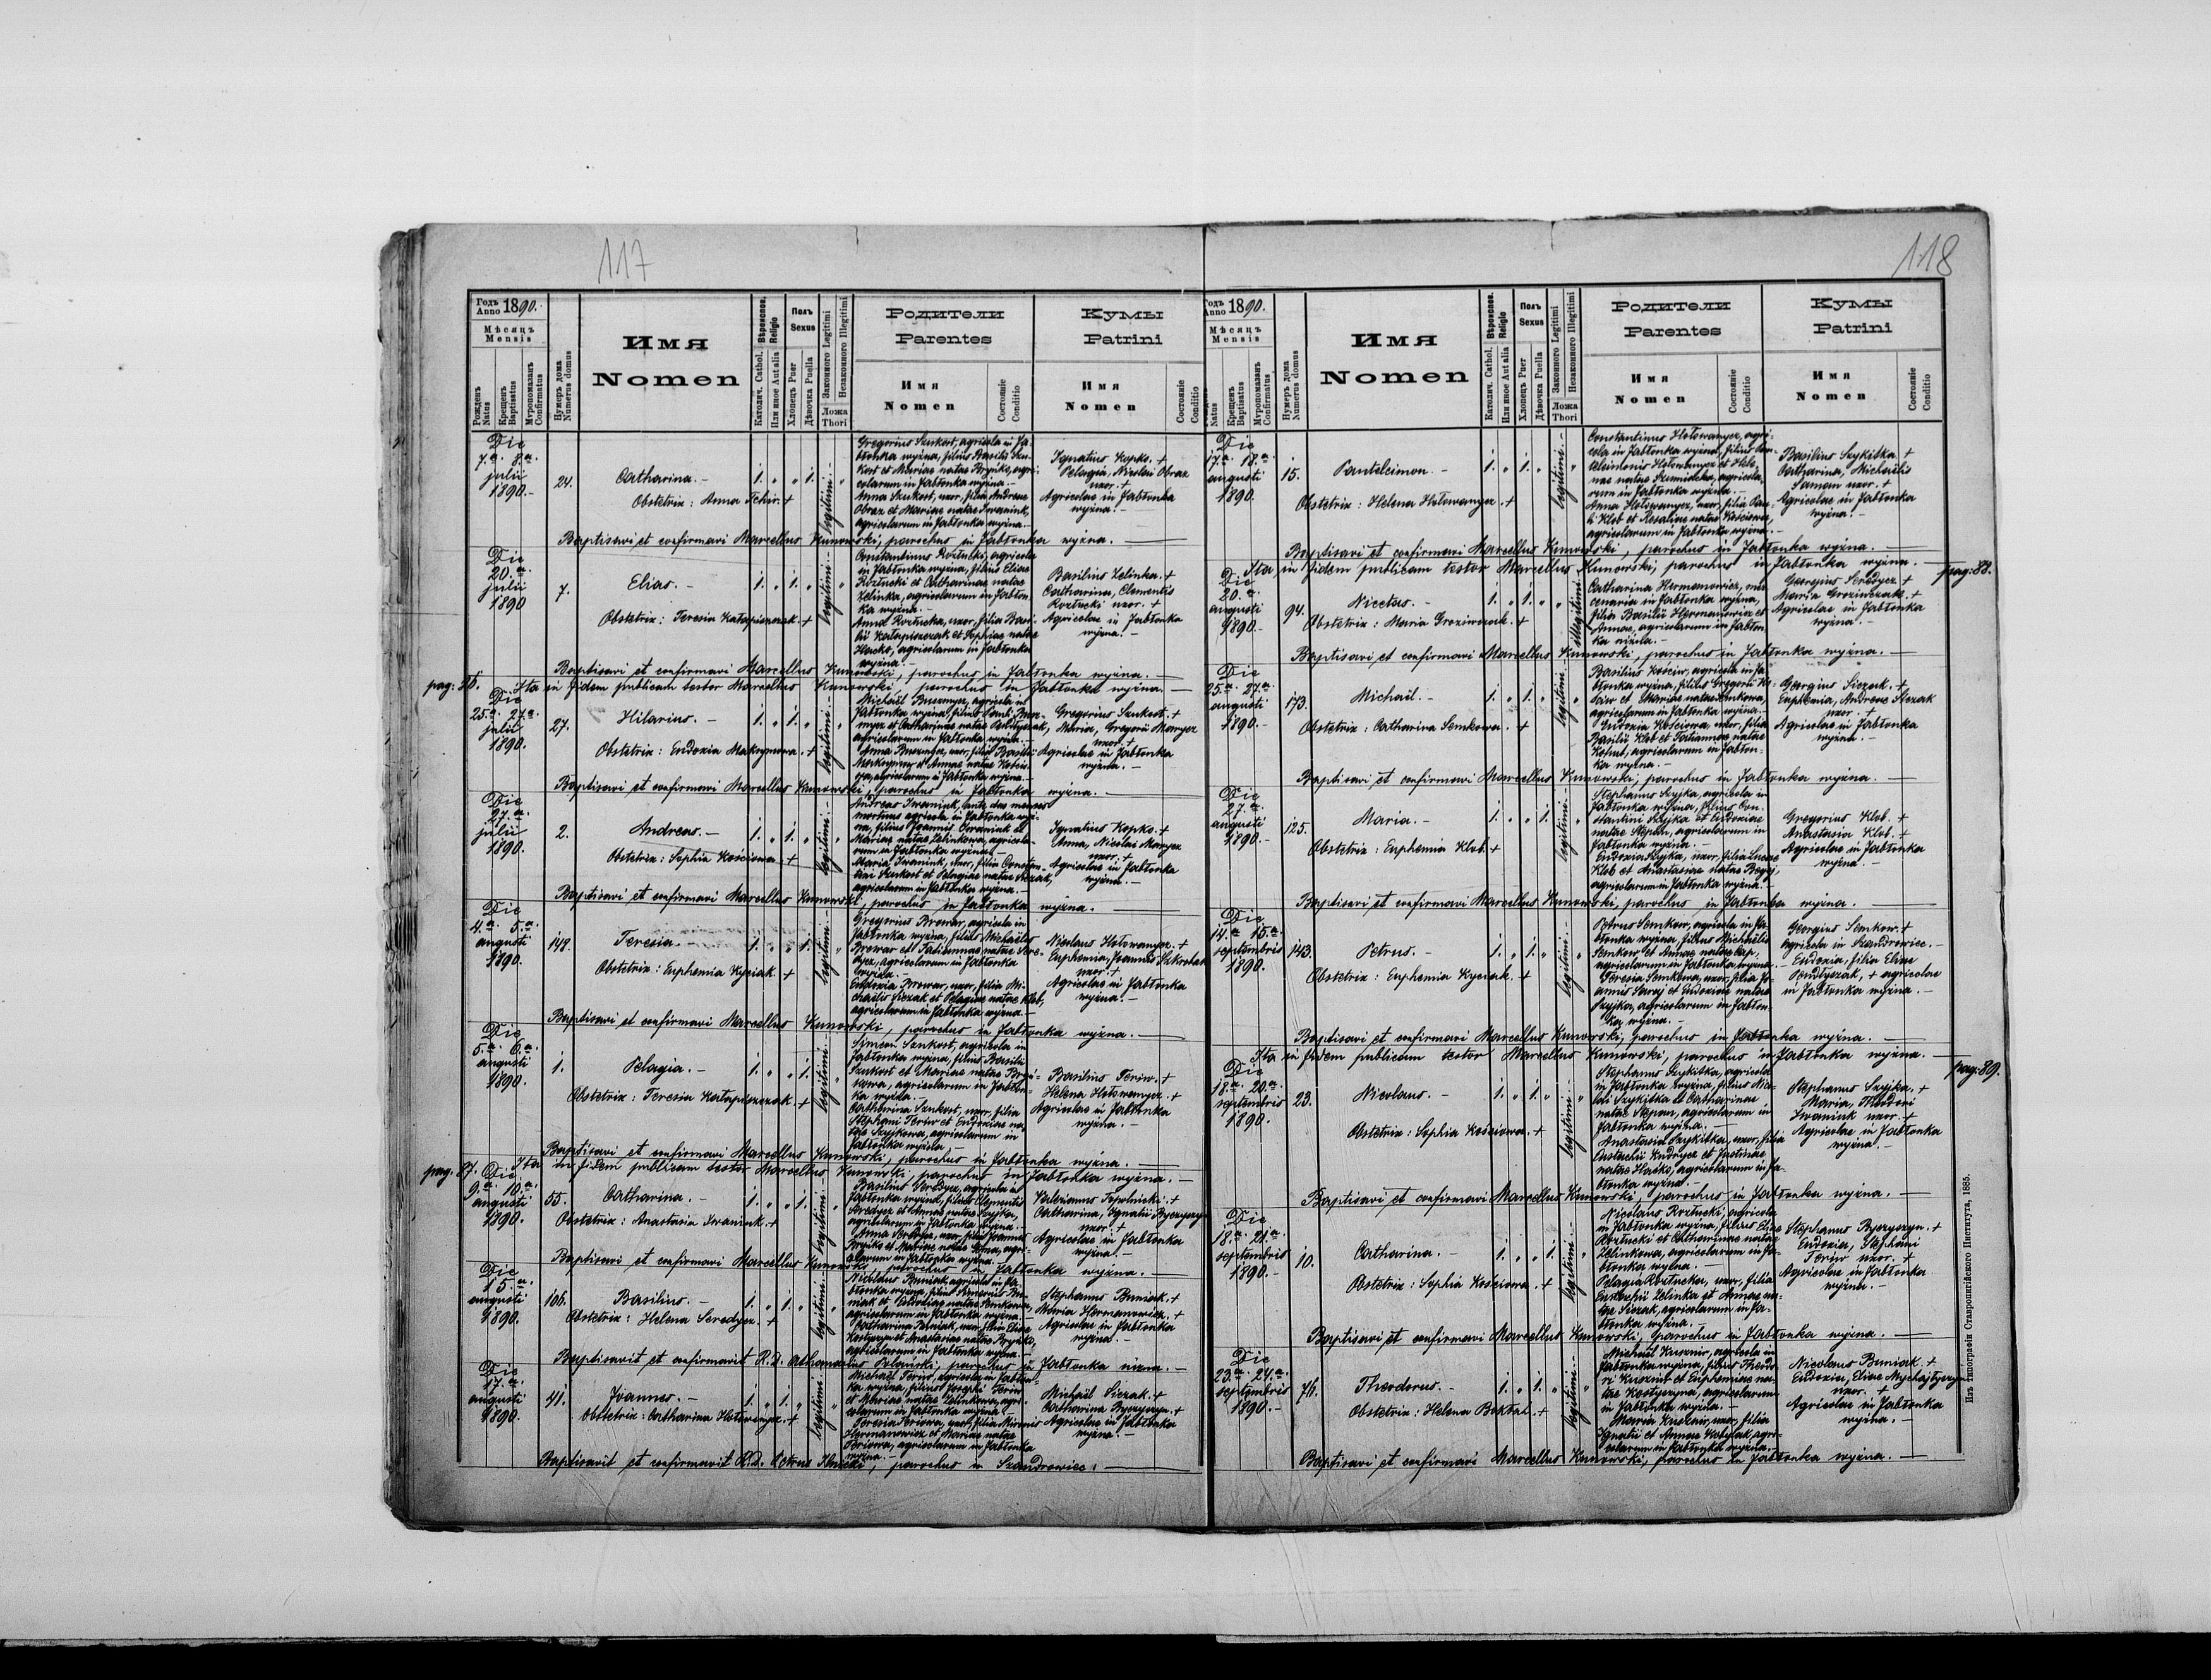 117
Годъ 1890.
Anno
Мѣсяцъ
Mensis
Рожденъ
Natus
Крещенъ
Baptisatus
Мѵропомазанъ
Confirmatus
Нумеръ дома
Numerus domus
Имя
Nomen
Вѣроиспов.
Religio
Католич. Cathol.
Или иное Aut alia
Полъ
Sexus
Хлопецъ Puer
Дѣвочка Puella
Законного Legitimi
Незаконного Illegitimi
Ложа
Thori
Родители
Parentes
Имя
Nomen
Состояніе
Conditio
Кумы
Patrini
Имя
Nomen
Состояніе
Conditio
Die
7.a 8.a
julii
1890.-
24.
Catharina. -
Obstetrix: Anna
1. " " 1.
legitimi -
Gregorius Szukost, agricola in Ja-
błonka wyżna, filius Basilii Szu-
kost et Mariae natae Bryńko, agri-
colarum in Jabłonka wyżna. -
Anna Szukost, uxor, filia Andreae
Obraz et Mariae natae Iwaniuk,
agricolarum in Jabłonka wyżna. -
Ignatius Kopko. +
Pelagia, Nicolai Obraz
uxor. +
Agricolae in Jabłonka
wyżna. -
Baptisavi et confirmavi Marcellus Kunowski, parochus in Jabłonka wyżna. -
Die
20.a
julii
1890
7.
Elias. -
Obstetrix: Teresia Katapiszczak. +
1. " 1. "
legitimi -
Constantinus Roztucki, agricola
in Jabłonka wyżna, filius Eliae
Roztucki et Catharinae natae
Zelinka, agricolarum in Jabłon-
ka wyżna. -
Anna Roztucka, uxor, filia Basi-
lii Katapiszczak et Sophiae natae
Hacko, agricolarum in Jabłonka
wyżna. -
Basilius Zelinka. +
Catharina, Clementis
Roztucki uxor. +
Agricolae in Jabłonka
wyżna. -
Baptisavi et confirmavi Marcellus Kunowski, parochus in Jabłonka wyżna. -
pag: 86. Ita in fidem publicam testor Marcellus Kunowski, parochus in Jabłonka wyżna. -
Die
25.a 27.a
julii
1890.
27.
Hilarius. -
Obstetrix: Eudoxia Makrymowa. +
1. " 1. "
legitimi -
Michaël
Jabłonka wyżna, filius Pauli
et Catharinae natae
agricolarum in Jabłonka wyżna. -
Anna uxor, filia Basilii
et Annae natae
agricolarum in Jabłonka wyżna. -
Gregorius Szukost. +
Maria, Gregorii Maryez
uxor. +
Agricolae in Jabłonka
wyżna. -
Baptisavi et confirmavi Marcellus Kunowski, parochus in Jabłonka wyżna. -
Die
27.a
julii
1890.
2.
Andreas. -
Obstetrix: Sophia Kościowa. +
1. " 1. "
legitimi -
Andreas Iwaniuk, ante duo menses
mortuus agricola in Jabłonka wyż-
na, filius Joannis Iwaniuk et
Mariae natae Zelinkowa, agricola-
rum in Jabłonka wyżna. -
Maria Iwaniuk, uxor, filia Constan-
tini Szukost et Pelagiae natae Siczak,
agricolarum in Jabłonka wyżna. -
Ignatius Kopko. +
Anna, Nicolai Maryez
uxor. +
Agricolae in Jabłonka
wyżna. -
Baptisavi et confirmavi Marcellus Kunowski, parochus in Jabłonka wyżna. -
Die
4.a 5.a
augusti
1890.
148.
Teresia. -
Obstetrix: Euphemia Kyciak. +
1. " " 1.
legitimi -
Gregorius Browar, agricola in
Jabłonka wyżna, filius Michaëlis
Browar et Tatiannae natae Sere-
dycz, agricolarum in Jabłonka
wyżna. -
Eudoxia Browar, uxor, filia Mi-
chaëlis Siczak et Pelagiae natae Kłob,
agricolarum in Jabłonka wyżna. -
Nicolaus Hołowanycz. +
Euphemia, Joannis
uxor. +
Agricolae in Jabłonka
wyżna. -
Baptisavi et confirmavi Marcellus Kunowski, parochus in Jabłonka wyżna. -
Die
5.a 6.a
augusti
1890.
1.
Pelagia. -
Obstetrix: Teresia Katapiszczak. +
1. " " 1.
legitimi -
Simeon Szukost, agricola in
Jabłonka wyżna, filius Basilii
Szukost et Mariae natae
agricolarum in Jabłon-
ka wyżna. -
Catharina Szukost, uxor, filia
Stephani Feriw et Eudoxiae na-
tae Szyjkowa, agricolarum in
Jabłonka wyżna. -
Basilius Feriw. +
Helena Hołowanycz. +
Agricolae in Jabłonka
wyżna. -
Baptisavi et confirmavi Marcellus Kunowski, parochus in Jabłonka wyżna. -
pag. 87. Ita in fidem publicam testor Marcellus Kunowski, parochus in Jabłonka wyżna. -
Die
9.a 10.a
augusti
1890.
55.
Catharina. -
Obstetrix: Anastasia Iwaniuk. +
1. " " 1.
legitimi -
Basilius Seredycz, agricola in
Jabłonka wyżna, filius Clementis
Seredycz et Annae natae Szyjka,
agricolarum in Jabłonka wyżna. -
Anna Seredycz, uxor, filia Joannis
Bryńko et Mariae natae agri-
colarum in Jabłonka wyżna. -
Valerianus Topolnicki. +
Catharina, Ignatii
uxor. +
Agricolae in Jabłonka
wyżna. -
Baptisavi et confirmavi Marcellus Kunowski, parochus in Jabłonka wyżna. -
Die
15.a
augusti
1890.
106.
Basilius. -
Obstetrix: Helena Seredycz. +
1. " 1. "
legitimi -
Nicolaus Buniak, agricola in Ja-
błonka wyżna, filius Bu-
niak et Eudoxiae natae Semkowa,
agricolarum in Jabłonka wyżna. -
Catharina Buniak, uxor, filia Eliae
et Anastasiae natae Bryńko,
agricolarum in Jabłonka wyżna. -
Stephanus Buniak. +
Maria Hermanowicz. +
Agricolae in Jabłonka
wyżna. -
Baptisavit et confirmavit R.D. Athanasius Polański, parochus in Jabłonka niżna. -
Die
17.a
augusti
1890.
41.
Joannes. -
Obstetrix: Catharina Hołowanycz. +
1. " 1. "
legitimi -
Michaël Feriw, agricola in Jabłon-
ka wyżna, filius Josephi Feriw
et Mariae natae Zelinkowa, agri-
colarum in Jabłonka wyżna. -
Teresia Feriowa, uxor, filia
Hermanowicz et Mariae natae
Feriowa, agricolarum in Jabłonka
wyżna. -
Michaël Siczak. +
Catharina Ryczyczyn. +
Agricolae in Jabłonka
wyżna. -
Baptisavit et confirmavit R.D. Petrus Ilnicki, parochus in Szandrowiec. -
118
Годъ 1890.
Anno
Мѣсяцъ
Mensis
Natus
Крещенъ
Baptisatus
Мѵропомазанъ
Confirmatus
Нумеръ дома
Numerus domus
Имя
Nomen
Вѣроиспов.
Religio
Католич. Cathol.
Или иное Aut alia
Полъ
Sexus
Хлопецъ Puer
Дѣвочка Puella
Законного Legitimi
Незаконного Illegitimi
Ложа
Thori
Родители
Parentes
Имя
Nomen
Состояніе
Conditio
Кумы
Patrini
Имя
Nomen
Состояніе
Conditio
Die
17.a 18.a
augusti
1890.
15.
Panteleimon. -
Obstetrix: Helena Hołowanycz. +
1. " 1. "
legitimi -
Constantinus Hołowanycz, agri-
cola in Jabłonka wyżna, filius Pan-
teleimonis Hołowanycz et Hele-
nae natae Szumiacka, agricola-
rum in Jabłonka wyżna. -
Anna Hołowanycz, uxor, filia Pau-
li Kłob et Rosaliae natae Kościowa,
agricolarum in Jabłonka wyżna. -
Basilius Szykitka. +
Catharina, Michaëlis
Saman uxor. +
Agricolae in Jabłonka
wyżna. -
Baptisavi et confirmavi Marcellus Kunowski, parochus in Jabłonka wyżna. -
Ita in fidem publicam testor Marcellus Kunowski, parochus in Jabłonka wyżna. - pag: 88.
Die
20.a
augusti
1890.-
94.
Nicetas. -
Obstetrix: Maria Groziwczak. +
1. " 1. "
illegitimi -
Catharina Hermanowicz, mer-
cenaria in Jabłonka wyżna,
filia Basilii Hermanowicz et
Annae, agricolarum in Jabłon-
ka niżna. -
Georgius Seredycz. +
Maria Groziwczak. +
Agricolae in Jabłonka
wyżna. -
Baptisavi et confirmavi Marcellus Kunowski, parochus in Jabłonka wyżna. -
Die
25.a 27.a
augusti
1890.-
173.
Michaël. -
Obstetrix: Catharina Semkowa. +
1. " 1. "
legitimi -
Basilius Kościw, agricola in Ja-
błonka wyżna, filius Gregorii Ko-
ściw et Mariae natae Semkowa,
agricolarum in Jabłonka wyżna. -
Eudoxia Kościowa, uxor, filia
Basilii Kłob et Tatiannae natae
Kohut, agricolarum in Jabłon-
ka wyżna. -
Georgius Siczak. +
Euphemia, Andreae Siczak
uxor. +
Agricolae in Jabłonka
wyżna. -
Baptisavi et confirmavi Marcellus Kunowski, parochus in Jabłonka wyżna. -
Die
27.a
augusti
1890.-
125.
Maria. -
Obstetrix: Euphemia Kłob. +
1. " " 1.
legitimi -
Stephanus Szyjka, agricola in
Jabłonka wyżna, filius Con-
stantini Szyjka et Eudoxiae
natae Stepan, agricolarum in
Jabłonka wyżna. -
Eudoxia Szyjka, uxor, filia Lucae
Kłob et Anastasiae natae
agricolarum in Jabłonka wyżna. -
Gregorius Kłob. +
Anastasia Kłob. +
Agricolae in Jabłonka
wyżna. -
Baptisavi et confirmavi Marcellus Kunowski, parochus in Jabłonka wyżna. -
Die
14.a 15.a
septembris
1890.
143.
Petrus. -
Obstetrix: Euphemia Kyciak. +
1. " 1. "
legitimi -
Petrus Semkow, agricola in Ja-
błonka wyżna, filius Michaëlis
Semkow et Annae natae
agricolarum in Jabłonka wyżna. -
Teresia Semkowa, uxor, filia Jo-
annis Saraj et Eudoxiae natae
Szyjka, agricolarum in Jabłon-
ka wyżna. -
Georgius Semkow. +
agricola in Szandrowiec. -
Eudoxia, filia Eliae
+ agricolae
in Jabłonka wyżna. -
Baptisavi et confirmavi Marcellus Kunowski, parochus in Jabłonka wyżna. -
Ita in fidem publicam testor Marcellus Kunowski, parochus in Jabłonka wyżna. - pag: 89.
Die
18.a 20.a
septembris
1890.
23.
Nicolaus. -
Obstetrix: Sophia Kościowa. +
1. " 1. "
legitimi -
Stephanus Szykitka, agricola
in Jabłonka wyżna, filius Nico-
lai Szykitka et Catharinae
natae Stepan, agricolarum in
Jabłonka wyżna. -
Anastasia Szykitka, uxor, filia
Eustachii Kudrycz et Justinae
natae Hacko, agricolarum in Ja-
błonka wyżna. -
Stephanus Szyjka. +
Maria, Theodori
Iwaniuk uxor. +
Agricolae in Jabłonka
wyżna. -
Baptisavi et confirmavi Marcellus Kunowski, parochus in Jabłonka wyżna. -
Die
18.a 21.a
septembris
1890.-
10.
Catharina. -
Obstetrix: Sophia Kościowa. +
1. " " 1.
legitimi -
Nicolaus Roztucki, agricola
in Jabłonka wyżna, filius Eliae
Roztucki et Catharinae natae
Zelinkowa, agricolarum in Ja-
błonka wyżna. -
Pelagia Roztucka, uxor, filia
Eustachii Zelinka et Annae na-
tae Siczak, agricolarum in Ja-
błonka wyżna. -
Stephanus Ryczyczyn. +
Eudoxia, Stephani
Feriw uxor. +
Agricolae in Jabłonka
wyżna. -
Baptisavi et confirmavi Marcellus Kunowski, parochus in Jabłonka wyżna. -
Die
23.a 24.a
septembris
1890.-
76.
Theodorus. -
Obstetrix: Helena
1. " 1. "
legitimi -
Michaël Kusznir, agricola in
Jabłonka wyżna, filius Theodo-
ri Kusznir et Euphemiae na-
tae Kostyczyna, agricolarum
in Jabłonka wyżna. -
Maria Kusznir, uxor, filia
Ignatii et Annae Kobylak, agri-
colarum in Jabłonka wyżna. -
Nicolaus Buniak. +
Eudoxia, Eliae
uxor. +
Agricolae in Jabłonka
wyżna. -
Baptisavi et confirmavi Marcellus Kunowski, parochus in Jabłonka wyżna. -
Изъ типографіи Ставропигійского Института, 1885.